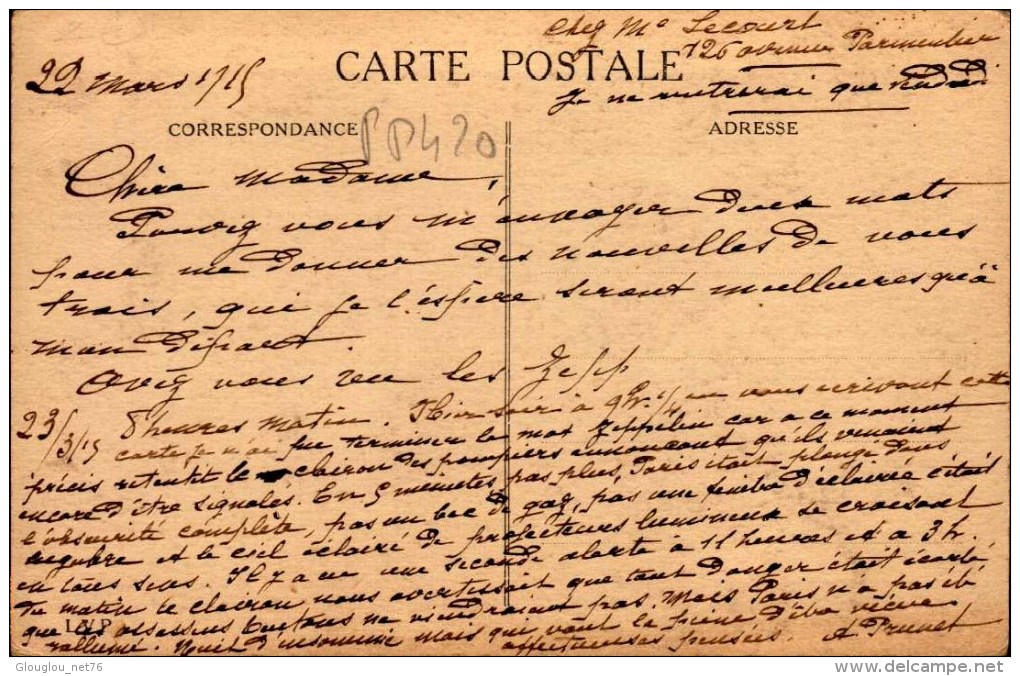 Chez Me Lecourt
126 avenue Parmentier
22 Mars 1915
CARTE POSTALE
Je ne rentrerai que vendredi
CORRESPONDANCE
PP420
ADRESSE
Chère Madame,
Pouvez vous m'envoyer deux mots
pour me donner des nouvelles de vous
trois, qui je l'éspère seront meilleures qu'à
mon départ.
Avez vous vu les Zepp
23/3/15 8 heures matin. Hier soir à 9h 1/4 en vous écrivant cette
carte je n'ai pu terminer le mot Zeppelin car à ce moment
précis retentit le clairon des pompiers annonçant qu'ils venaient
encore d'être signalés. En 5 minutes, pas plus, Paris était plongé dans
l'obscurité complète, pas un bec de gaz, pas une fenêtre d'éclairée c'était
lugubre et le ciel éclairé de projecteurs lumineux se croisant
en tous sens. Il y a eu une seconde alerte à 11 heures et à 3 h.
du matin le clairon nous avertissait que tout danger était écarté
que les assassins teutons ne viendraient pas. Mais Paris n'a pas été
rallumé. Nuit d'insomnie mais qui vaut la peine d'être vécue
affectueuses pensées A Prunet
LVP
Glouglou_net76
www.delcampe.net